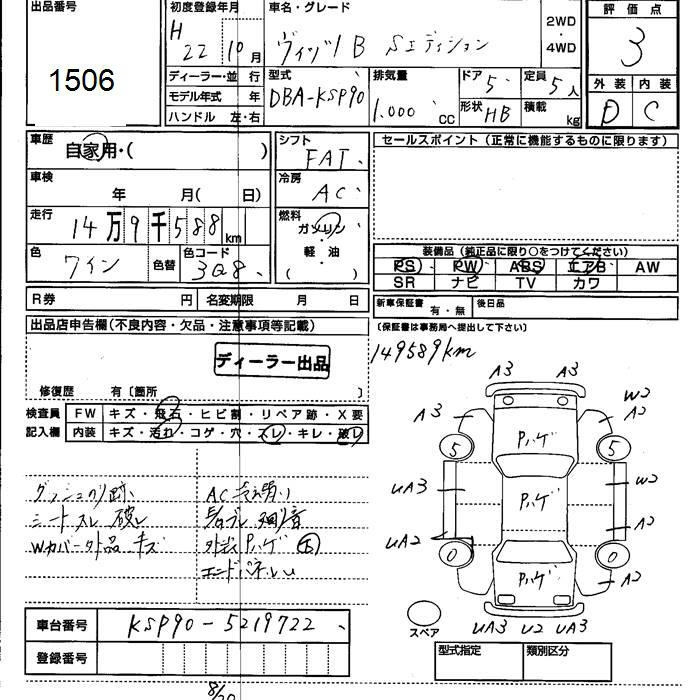 出品番号
1506
初度登録年月
H 22 10月
車名・グレード
ヴィッツ B Sエディション
2WD
・
4WD
評価点
3
外装 内装
D C
ディーラー・並行
モデル年式 年
ハンドル 左・右
型式
DBA-KSP90
排気量
1.000 cc
ドア 5
定員 5人
形状 HB
積載 kg
車歴
自家用・( )
車検
年 月( 日)
走行
14万9千588km
色
ワイン
色替
色コード
3Q8
シフト
FAT
冷房
AC
燃料
ガソリン
・
軽油
( )
セールスポイント (正常に機能するものに限ります)
装備品(純正品に限り○をつけてください)
PS PW ABS エアB AW
SR ナビ TV カワ
R券 円 名変期限 月 日
新車保証書 有・無
後日品
(保証書は事務局へ提出して下さい)
出品店申告欄(不良内容・欠品・注意事項等記載)
ディーラー出品
修復歴 有〔箇所 〕
149589km
検査員
記入欄
FW キズ・飛石・ヒビ割・リペア跡・X要
内装 キズ・汚れ・コゲ・穴・スレ・キレ・破レ
ダッシュのり跡
シートスレ 破レ
Wカバー欠品 キズ
外装Pハゲ
エンドパネルU
A3 A3
A3 W2
A2
Pハゲ
5 5
UA3 Pハゲ W2
UA2 A2
0 0
Pハゲ A2
スペア
UA3 U2 UA3
車台番号 KSP90-5219722
登録番号
型式指定 類別区分
8/20